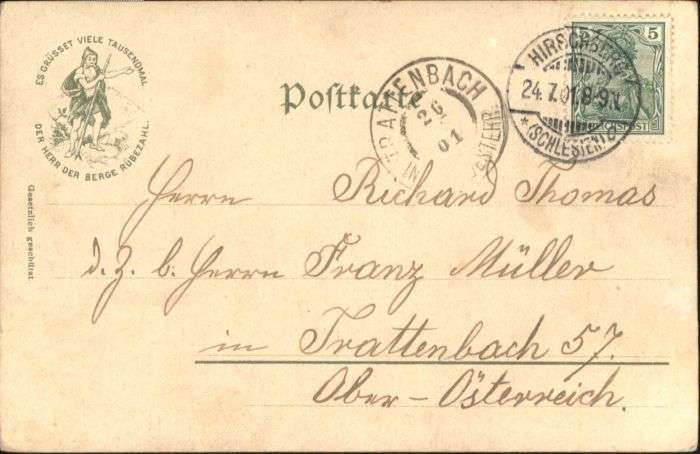 ES GRÜSSET VIELE TAUSENDMAL
DER HERR DER BERGE RÜBEZAHL.
Gesetzlich geschützt.
Postkarte
TRATTENBACH
26
01
HIRSCHBERG
24.7.01.8-9V.
*(SCHLESIEN)
5
REICHSPOST
Herrn Richard Thomas
d. Z. b. Herrn Franz Müller
in Trattenbach 57.
Ober-Österreich.